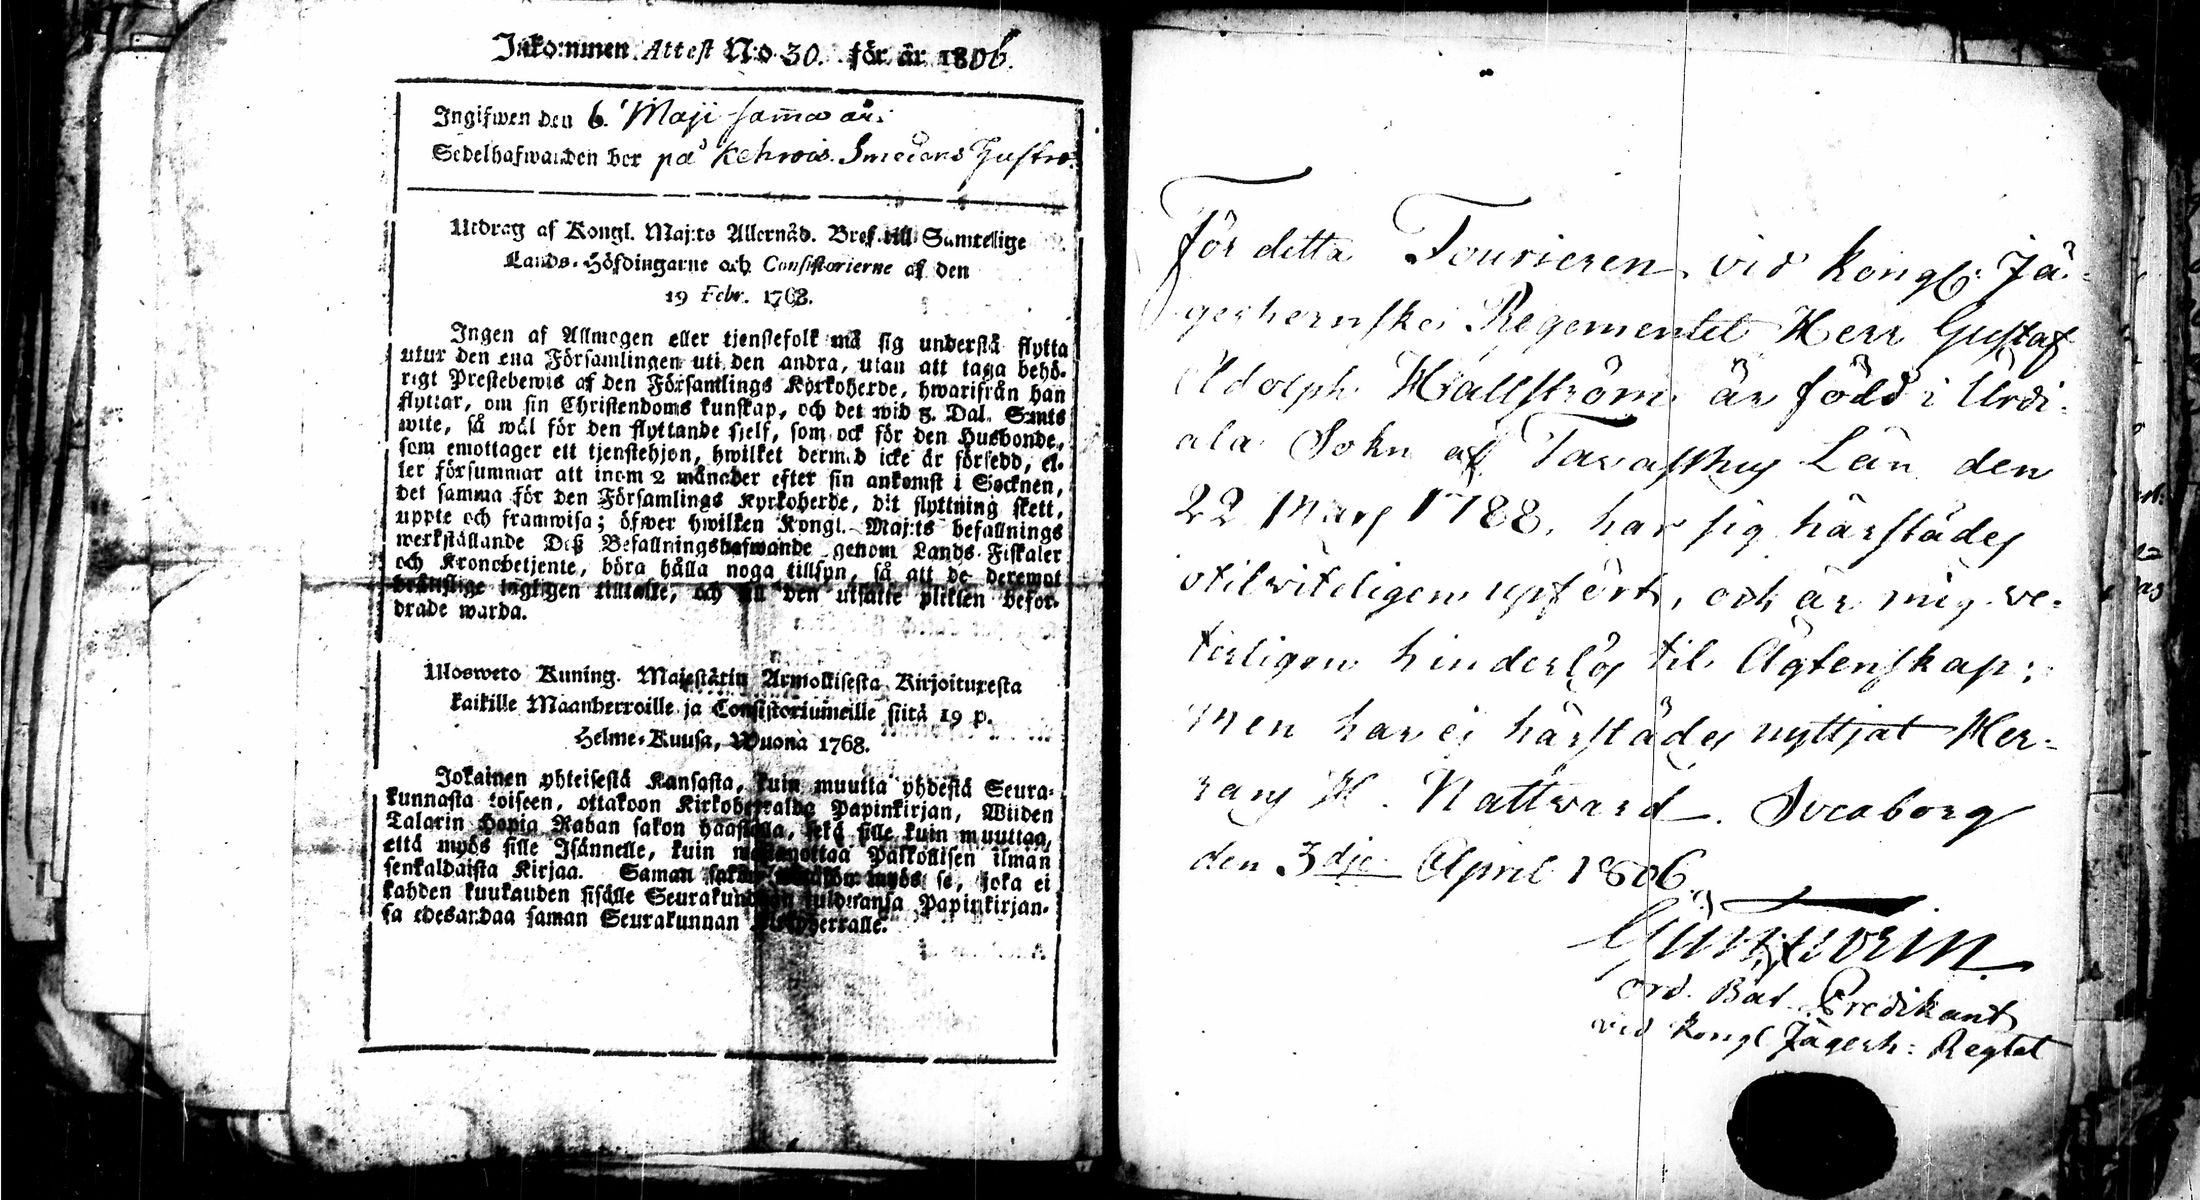 Inkommen Attest N:o 30. för år 1806.
Ingifwen den 6. Maji samma år.
Sedelhafwanden bor på Kehrois Smedens Hustro.
Utdrag af Kongl. Maj:ts Allernåd. Bref till Samtelige
Lands-Höfdingarne och Consistorierne af den
19 Febr. 1768.
Ingen af Allmogen eller tjenstefolk må sig understå flytta
utur den ena Församlingen uti den andra, utan att taga behö-
rigt Prestebewis af den Församlings Kyrkoherde, hwarifrån han
flyttar, om sin Christendoms kunskap, och det wid 5. Dal. S:mts
wite, så wäl för den flyttande sjelf, som ock för den Husbonde,
som emottager ett tjenstehjon, hwilket dermed icke är försedd, el-
ler försummar att inom 2 månader efter sin ankomst i Socknen,
det samma för den Församlings Kyrkoherde, dit flyttning skett,
uppte och framwisa; öfwer hwilken Kongl. Maj:ts befallnings
werkställande Deß Befallningshafwande genom Lands-Fiskaler
och Kronobetjente, böra hålla noga tillsyn, så att de deremot
bråttslige lagligen tilltalte, och till den utsatte plikten befor-
drade warda.
Ulosweto Kuning. Majestätin Armollisesta Kirjoituxesta
kaikille Maanherroille ja Consistoriumeille siitä 19 p.
Helme-Kuusa, Wuona 1768.
Jokainen yhteisestä Kansasta, kuin muutta yhdestä Seura-
kunnasta toiseen, ottakoon Kirkoherralda Papinkirjan, Wiiden
Talarin Hopia Rahan sakon haastolla, sekä sille kuin muuttaa,
että myös sille Isännelle, kuin wastanottaa Palkollisen ilman
senkaldaista Kirjaa. Saman sakon myös se, joka ei
kahden kuukauden sisälle Seurakundaan tulduansa Papinkirjan-
sa edesandaa saman Seurakunnan Kirkoherralle.
För detta Fourieren vid Kongl: Jä-
gerhernske Regementet Herr Gustaf
Adolph Hallström är född i Urdi-
ala Sokn af Tavasthus Län den
22 Mars 1788, har sig härstädes
otilviteligen upfört, och är mig ve-
terligen hinderlös til Ägtenskap;
men har ej härstädes nyttjat Her-
rans H. Nattvard. Sveaborg
den 3dje April 1806.
Ord. Bat. Predikant
vid Kongl Jägerh: Regtet